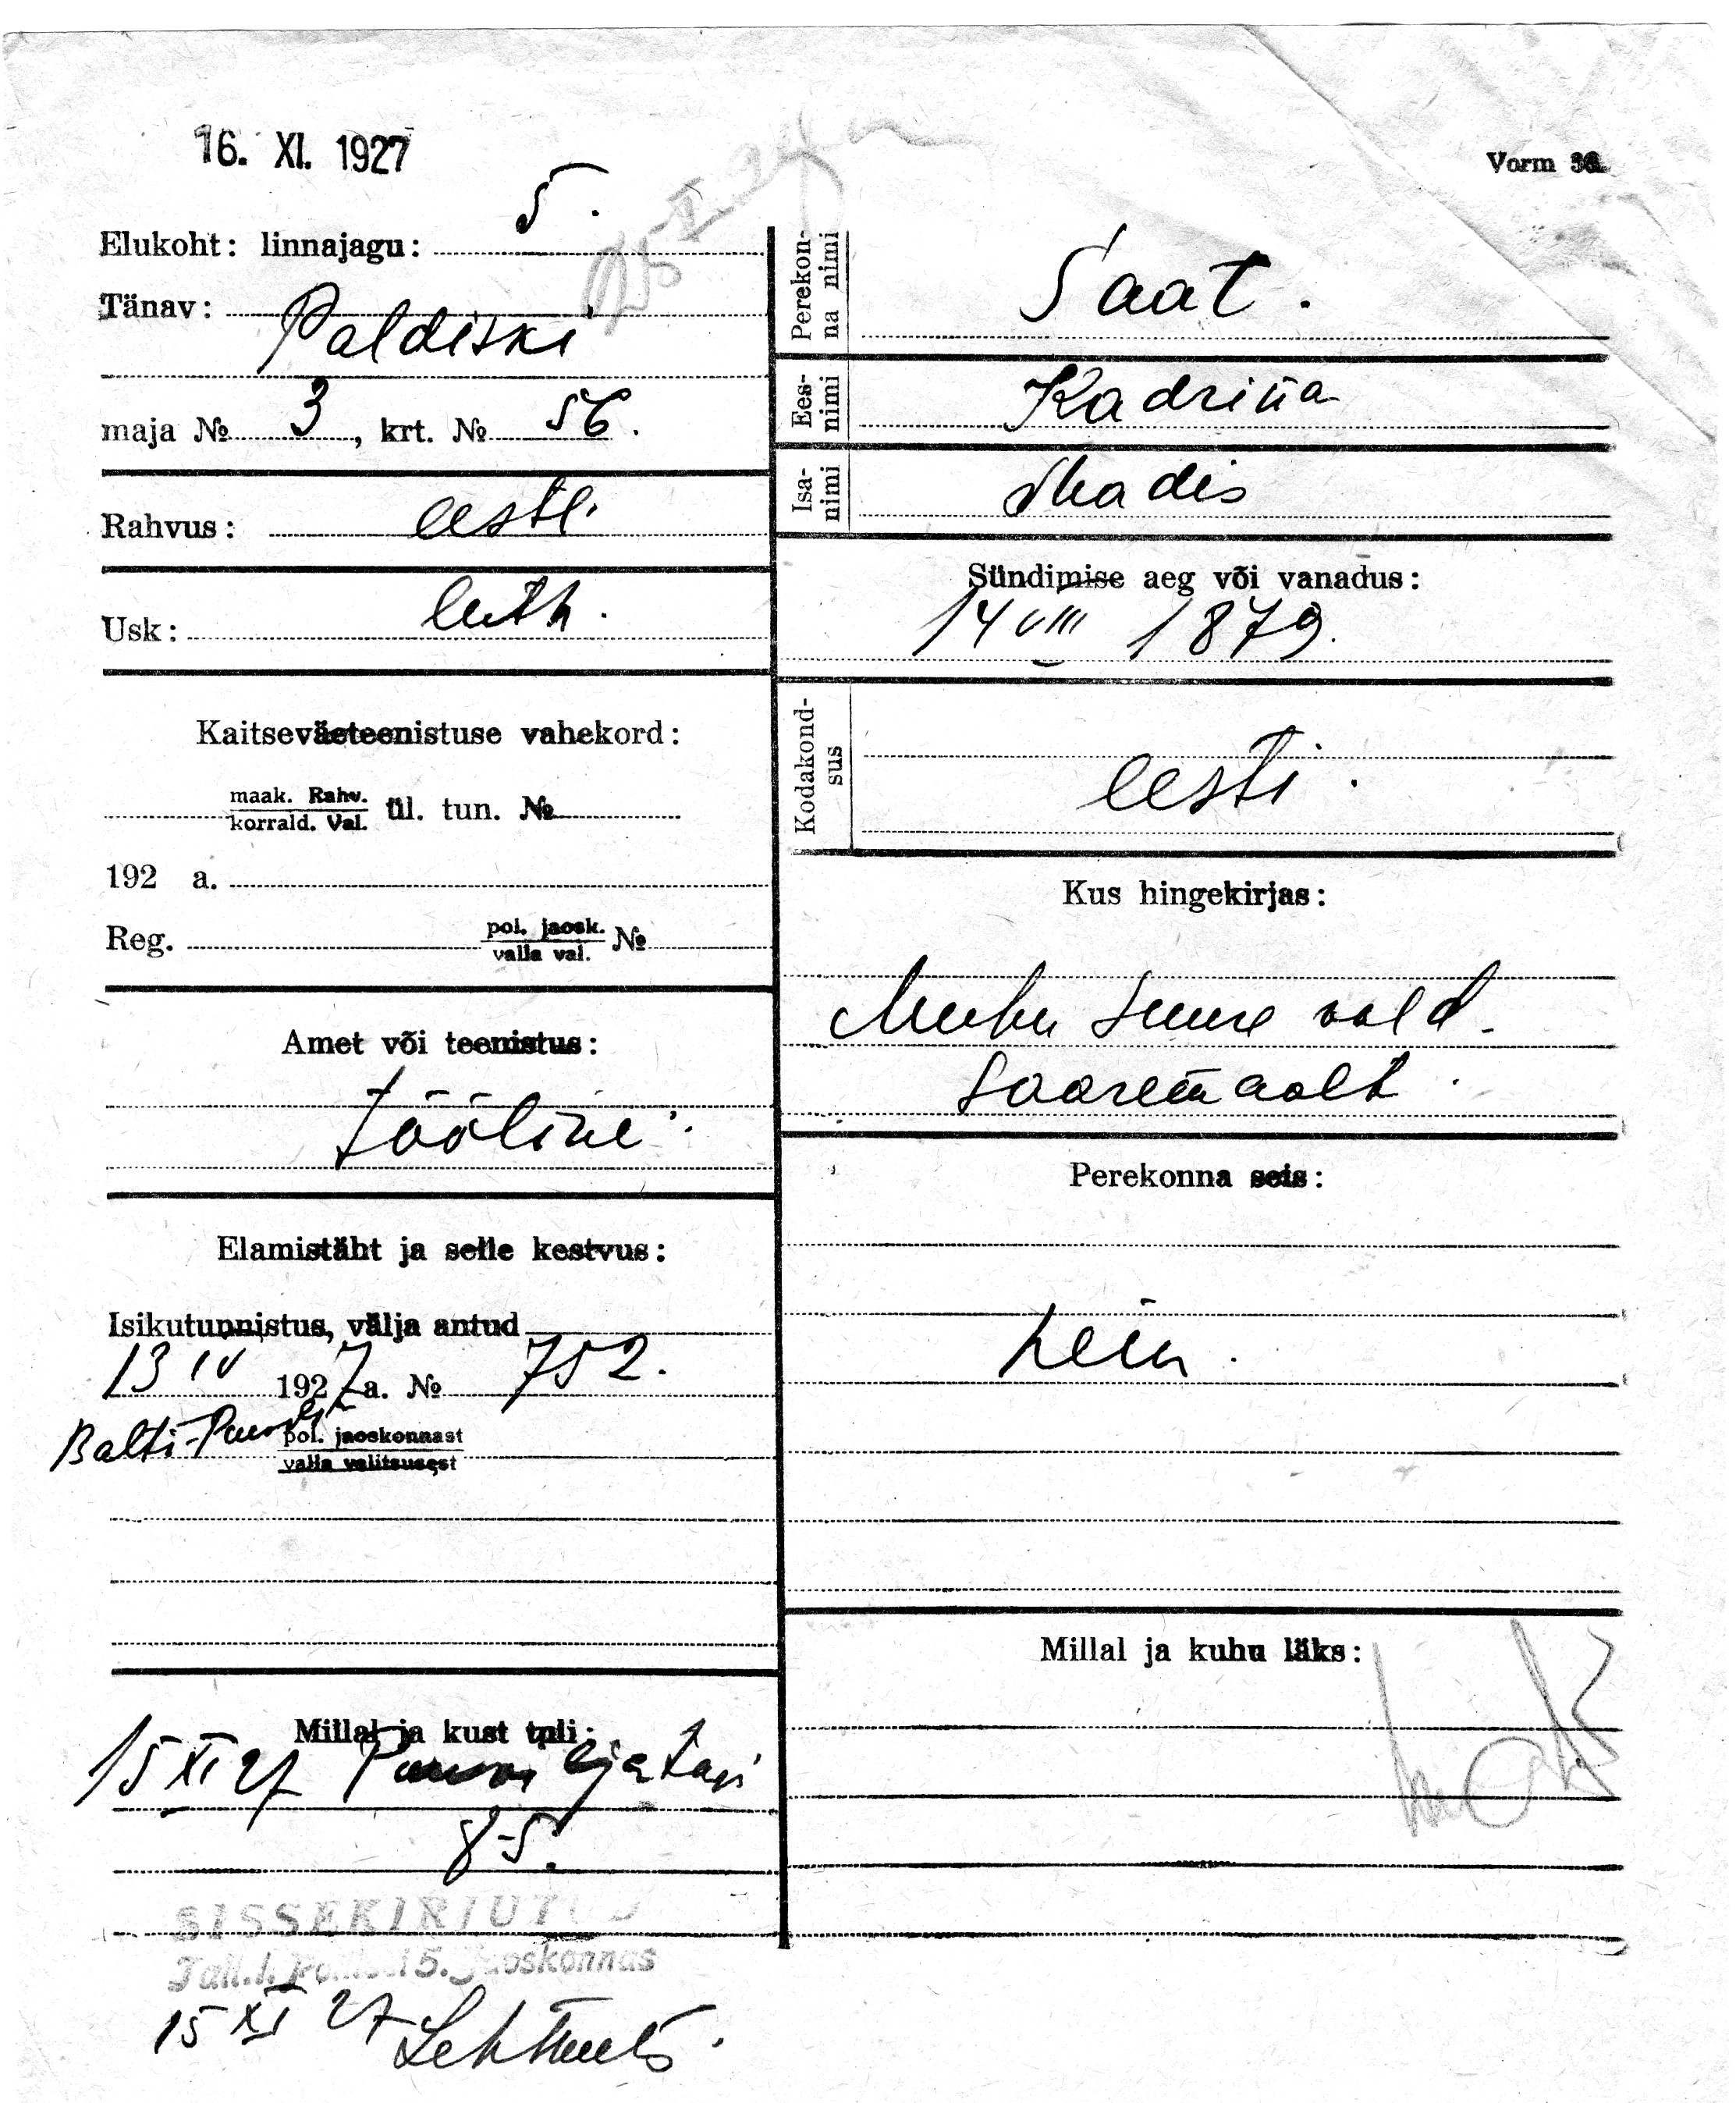 16. XI. 1927
Vorm 36.
Elukoht: linnajagu: 5.
Tänav:
Paldiski
maja № 3, krt. № 56.
Rahvus: eestl.
Usk: luth.
Kaitseväeteenistuse vahekord:
maak. Rahv.
korrald. Val. ül. tun. №
192 a.
Reg. pol. jaosk. №
valla val.
Amet või teenistus:
tööline.
Elamistäht ja selle kestvus:
Isikutunnistus, välja antud
13 IV 1927 a. № 752.
Balti-
pol. jaoskonnast
valla valitsusest
Millal ja kust tuli:
15 XI 27
8-5.
SISSEKIRJUTUD
Tall.l. Politsei 5. Jaoskonnas
15 XI 27
Perekonna nimi
Saat.
Eesnimi
Kadrina
Isanimi
Madis
Sündimise aeg või vanadus:
14 VIII 1879.
Kodakondsus
eesti.
Kus hingekirjas:
Muhu Suure vald.
Saaremaalt.
Perekonna seis:
Millal ja kuhu läks: